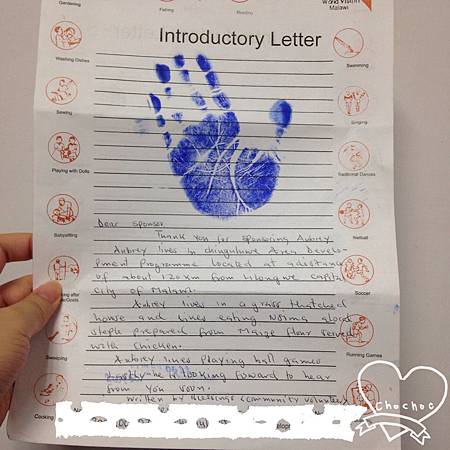 World Vision
Malawi
Gardening
Fishing
Reading
Introductory Letter
Washing Dishes
Swimming
Sewing
Singing
Playing with Dolls
Traditional Dances
Babysitting
Netball
Dear Sponsor
Thank you for sponsoring Aubrey
Aubrey lives in chingulume Area Develo-
pment programme located at a distance
of about 120km from Lilongwe capital
city of Malawi.
Aubrey lives in a grass thatched
house and likes eating Nsima a local
staple prepared from Maize flour served
with chicken.
Aubrey likes playing ball games
he is looking forward to hear
from you soon.
Written by Blessings (community volunteer)
Soccer
Sweeping
Running Games
Cooking
Chochoc